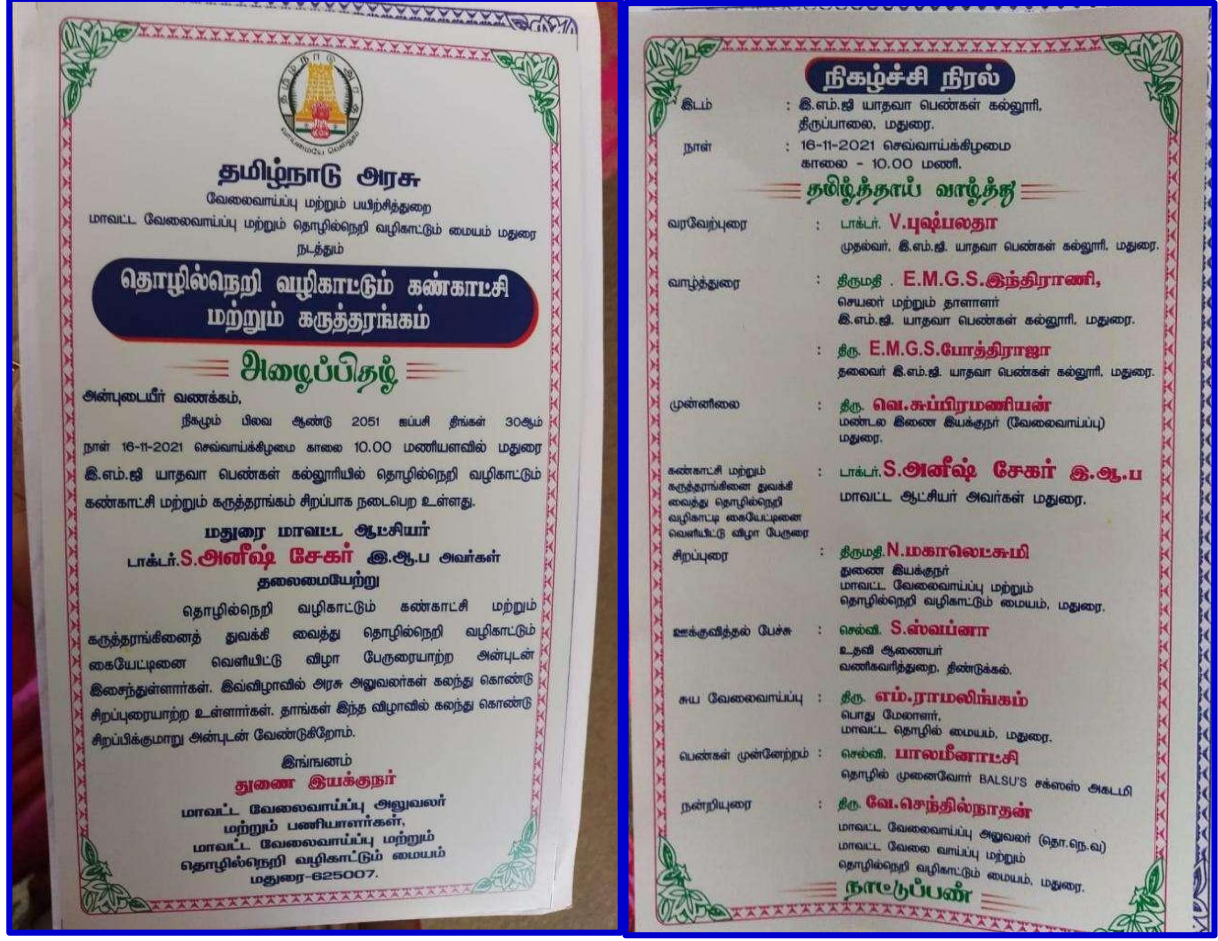 தமிழ்நாடு அரசு
வாய்மையே வெல்லும்
தமிழ்நாடு அரசு
வேலைவாய்ப்பு மற்றும் பயிற்சித்துறை
மாவட்ட வேலைவாய்ப்பு மற்றும் தொழில்நெறி வழிகாட்டும் மையம் மதுரை
நடத்தும்
தொழில்நெறி வழிகாட்டும் கண்காட்சி
மற்றும் கருத்தரங்கம்
அழைப்பிதழ்
அன்புடையீர் வணக்கம்,
நிகழும் பிலவ ஆண்டு 2051 ஐப்பசி திங்கள் 30ஆம்
நாள் 16-11-2021 செவ்வாய்க்கிழமை காலை 10.00 மணியளவில் மதுரை
இ.எம்.ஜி யாதவா பெண்கள் கல்லூரியில் தொழில்நெறி வழிகாட்டும்
கண்காட்சி மற்றும் கருத்தரங்கம் சிறப்பாக நடைபெற உள்ளது.
மதுரை மாவட்ட ஆட்சியர்
டாக்டர்.S.அனீஷ் சேகர் இ.ஆ.ப அவர்கள்
தலைமையேற்று
தொழில்நெறி வழிகாட்டும் கண்காட்சி மற்றும்
கருத்தரங்கினைத் துவக்கி வைத்து தொழில்நெறி வழிகாட்டும்
கையேட்டினை வெளியிட்டு விழா பேருரையாற்ற அன்புடன்
இசைந்துள்ளார்கள். இவ்விழாவில் அரசு அலுவலர்கள் கலந்து கொண்டு
சிறப்புரையாற்ற உள்ளார்கள். தாங்கள் இந்த விழாவில் கலந்து கொண்டு
சிறப்பிக்குமாறு அன்புடன் வேண்டுகிறோம்.
இங்ஙனம்
துணை இயக்குநர்
மாவட்ட வேலைவாய்ப்பு அலுவலர்
மற்றும் பணியாளர்கள்,
மாவட்ட வேலைவாய்ப்பு மற்றும்
தொழில்நெறி வழிகாட்டும் மையம்
மதுரை-625007.
நிகழ்ச்சி நிரல்
இடம் : இ.எம்.ஜி யாதவா பெண்கள் கல்லூரி,
திருப்பாலை, மதுரை.
நாள் : 16-11-2021 செவ்வாய்க்கிழமை
காலை - 10.00 மணி.
தமிழ்த்தாய் வாழ்த்து
வரவேற்புரை : டாக்டர். V.புஷ்பலதா
முதல்வர், இ.எம்.ஜி. யாதவா பெண்கள் கல்லூரி, மதுரை.
வாழ்த்துரை : திருமதி . E.M.G.S.இந்திராணி,
செயலர் மற்றும் தாளாளர்
இ.எம்.ஜி. யாதவா பெண்கள் கல்லூரி, மதுரை.
: திரு. E.M.G.S.போத்திராஜா
தலைவர் இ.எம்.ஜி. யாதவா பெண்கள் கல்லூரி, மதுரை.
முன்னிலை : திரு. வெ.சுப்பிரமணியன்
மண்டல இணை இயக்குநர் (வேலைவாய்ப்பு)
மதுரை.
கண்காட்சி மற்றும் : டாக்டர்.S.அனீஷ் சேகர் இ.ஆ.ப
கருத்தரங்கினை துவக்கி
வைத்து தொழில்நெறி மாவட்ட ஆட்சியர் அவர்கள் மதுரை.
வழிகாட்டி கையேட்டினை
வெளியிட்டு விழா பேருரை
சிறப்புரை : திருமதி.N.மகாலெட்சுமி
துணை இயக்குநர்
மாவட்ட வேலைவாய்ப்பு மற்றும்
தொழில்நெறி வழிகாட்டும் மையம், மதுரை.
ஊக்குவித்தல் பேச்சு : செல்வி. S.ஸ்வப்னா
உதவி ஆணையர்
வணிகவரித்துறை, திண்டுக்கல்.
சுய வேலைவாய்ப்பு : திரு. எம்.ராமலிங்கம்
பொது மேலாளர்,
மாவட்ட தொழில் மையம், மதுரை.
பெண்கள் முன்னேற்றம் : செல்வி. பாலமீனாட்சி
தொழில் முனைவோர் BALSU'S சக்ஸஸ் அகடமி
நன்றியுரை : திரு. வே.செந்தில்நாதன்
மாவட்ட வேலைவாய்ப்பு அலுவலர் (தொ.நெ.வ)
மாவட்ட வேலை வாய்ப்பு மற்றும்
தொழில்நெறி வழிகாட்டும் மையம், மதுரை.
நாட்டுப்பண்